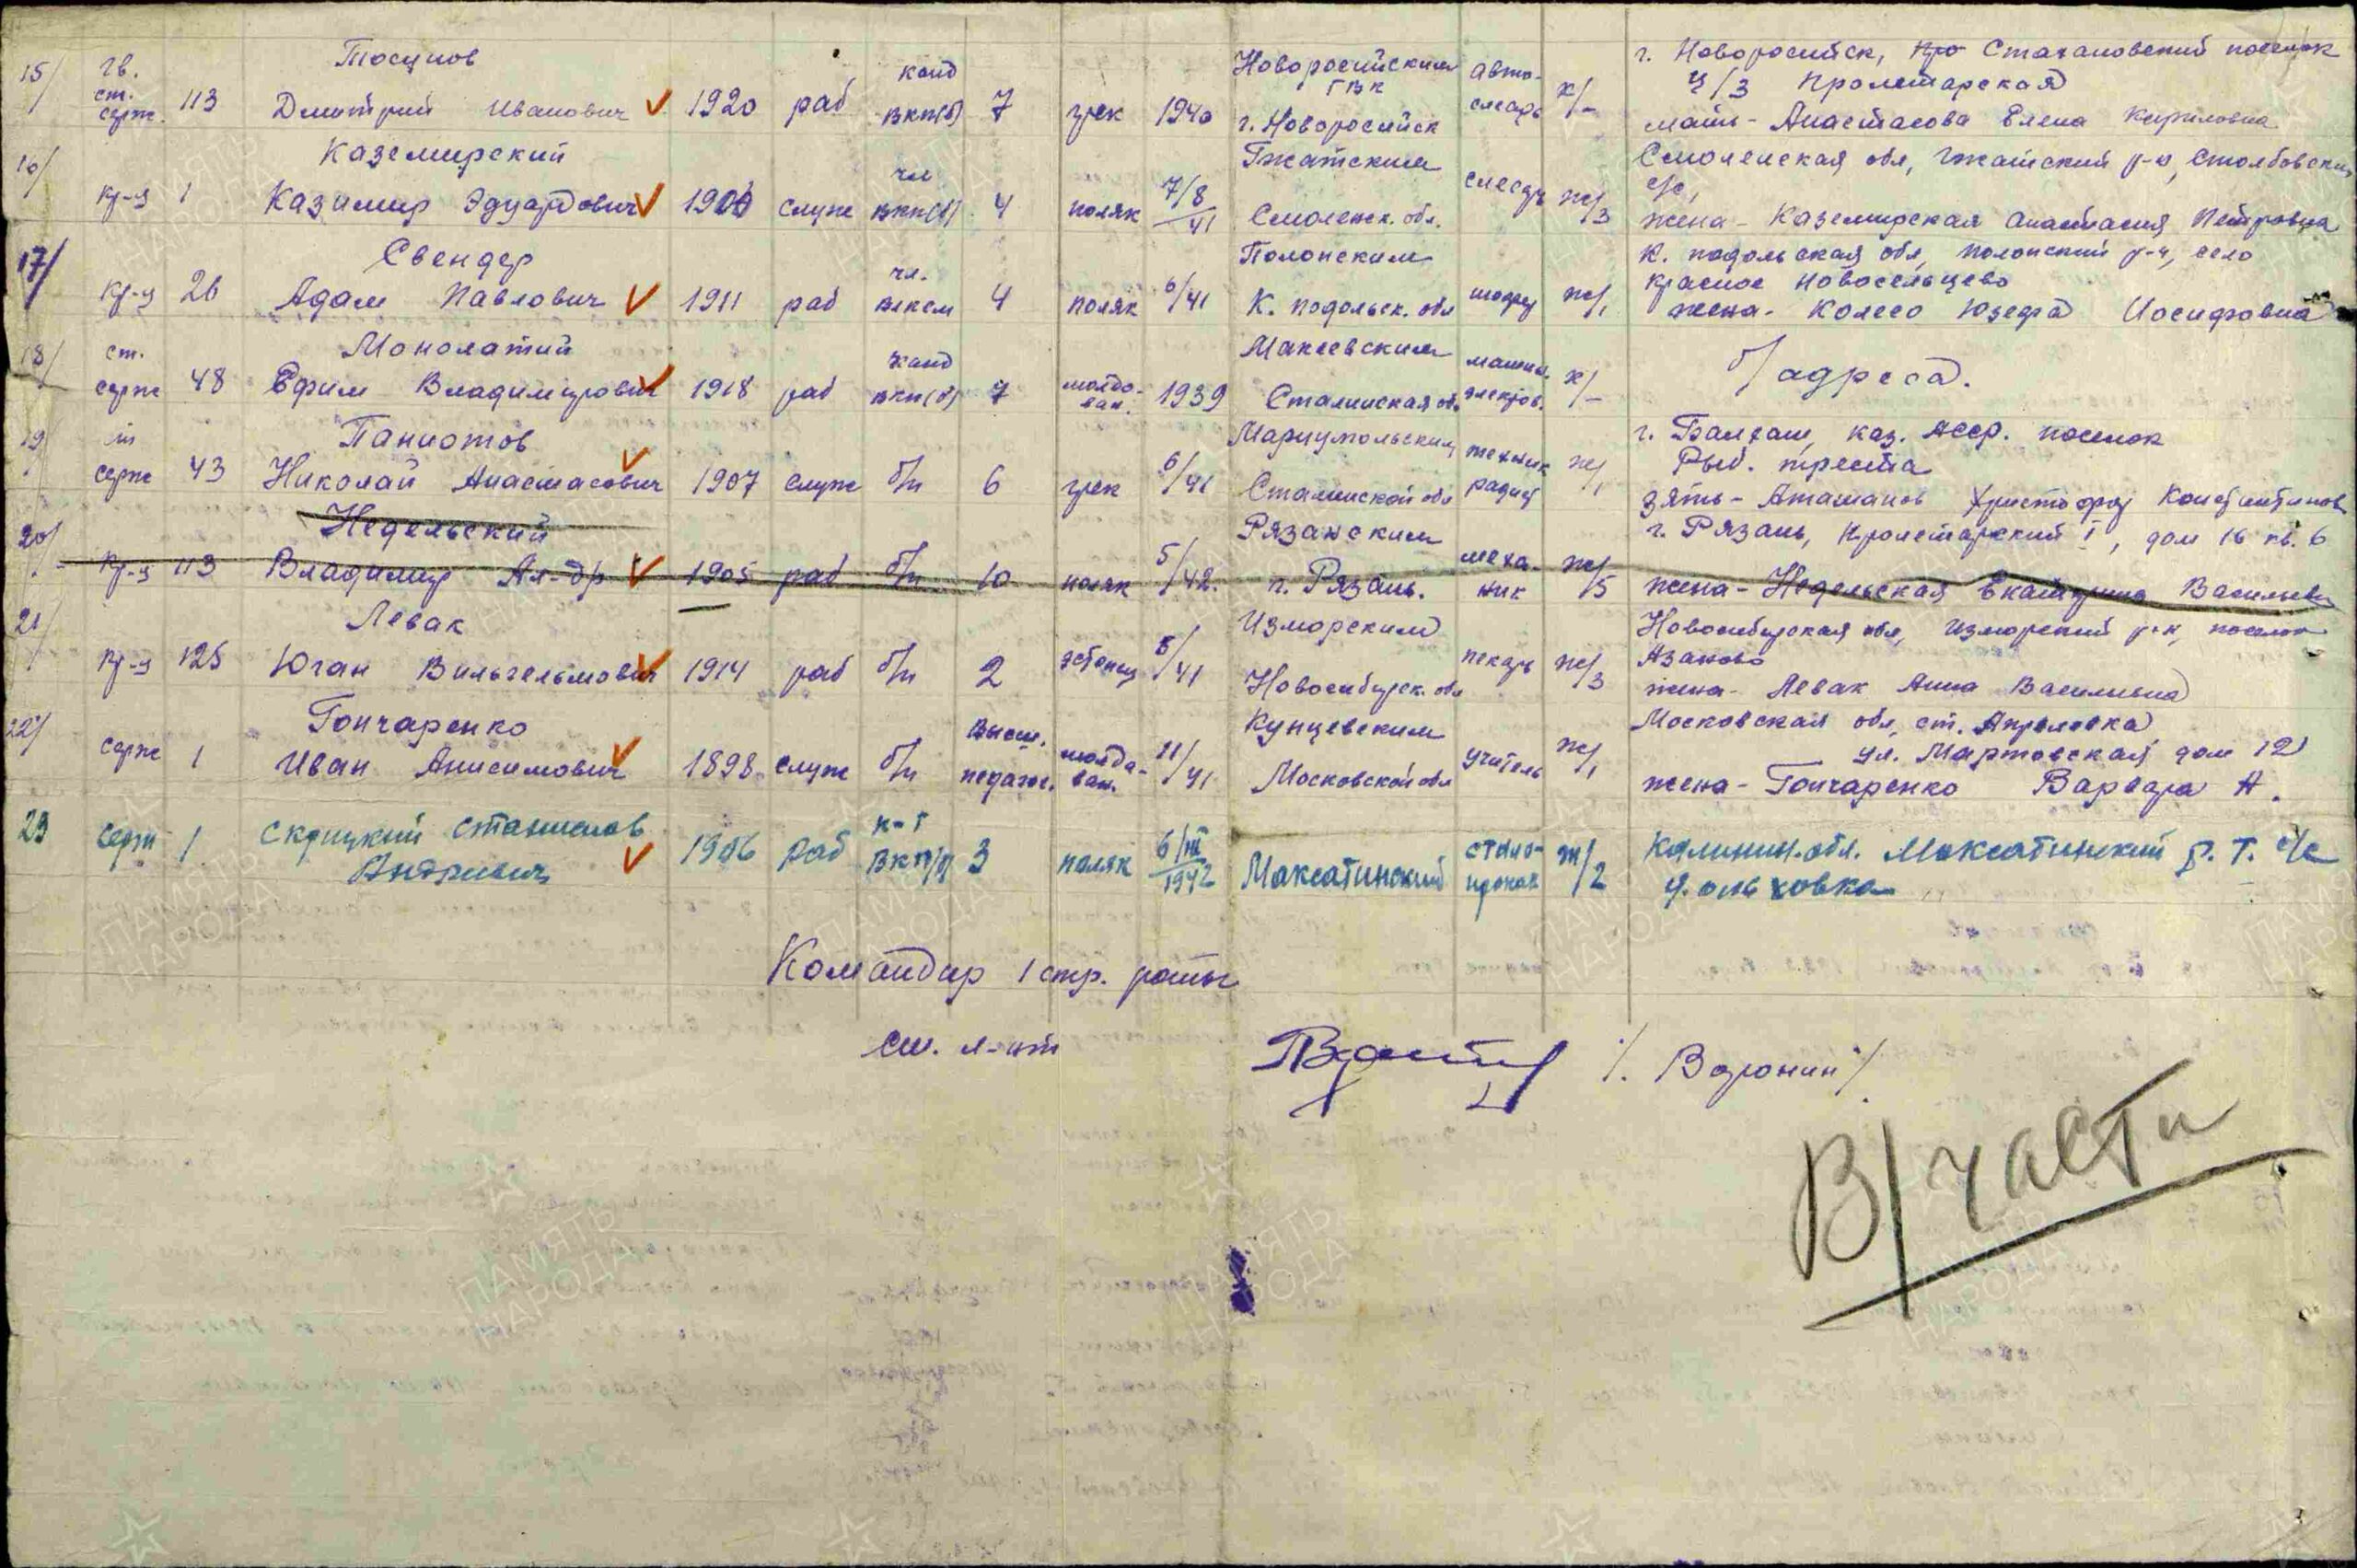 15/ гв. ст. серж. 113 Тосунов Дмитрий Иванович 1920 раб канд ВКП(б) 7 грек 1940 Новоросийским ГВК г. Новоросийск авто-слесарь х/- г. Новоросийск, Стахановский поселок
ч/3 Пролетарская
мать - Анастасова Елена Кириловна
16/ кр-ц 1 Каземирский Казимир Эдуардович служ чл ВКП(б) 4 поляк 7/8 41 Гжатским Смоленск. обл. слесарь ж/3 Смоленская обл, Гжатский р-н, Столбовский
с/с,
жена - Каземирская Анастасия Петровна
17/ кр-ц 26 Свендер Адам Павлович 1911 раб чл. ВЛКСМ 4 поляк 6/41 Полонским К. подольск. обл ж/1 К. подольская обл, Полонский р-н, село
красное Новосельцево
жена - Колесо Юзефа Иосифовна
18/ ст. серж 48 Монолатий Ефим Владимирович 1918 раб канд ВКП(б) 7 молдо-ван. 1939 Макеевским Сталинская обл машин. электров. х/- б/адреса.
19/ серж 43 Паниотов Николай Анастасович 1907 служ б/п 6 грек 6/41 Мариупольским Сталинской обл техник радист ж/1 г. Балхаш, каз. АССР. поселок
Рыб. треста
зять - Атаманов Христофор Константинов
20/ кр-ц 113 Недельский Владимир Ал-др 1905 раб б/п 10 поляк 5/42. Рязанским г. Рязань. меха-ник ж/5 г. Рязань, Пролетарский I, дом 16 кв. 6
жена - Недельская Екатерина Васильевн
21/ кр-ц 125 Левак Юган Вильгельмович 1914 раб б/п 2 эстонец 8/41 Изморским Новосибирск. обл пекарь ж/3 Новосибирская обл, Изморский р-н, поселок
Азаново
жена - Левак Анна Васильевна
22/ серж 1 Гончаренко Иван Анисимович 1898 служ б/п Высш. педагог. молда-ван. 11/41 Кунцевским Московской обл учитель ж/1 Московская обл, ст. Апрелевка
ул. Мартовская, дом 121
жена - Гончаренко Варвара А.
23 серж 1 Скрицкий Станислав Андреевич 1906 раб к-т ВКП/б/ 3 поляк 6/III 1942 Максатинский ж/2 Калинин. обл. Максатинский р. Т. с/с
д. ольховка
Командир 1 стр. роты
ст. л-нт /. Воронин /
В/части